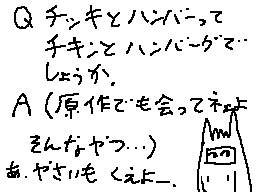 Q チンキとハンバーって
チキンとハンバーグで
しょうか。
A (原作でも会ってネェよ
そんなやつ…)
あ、やさいも くえよー、